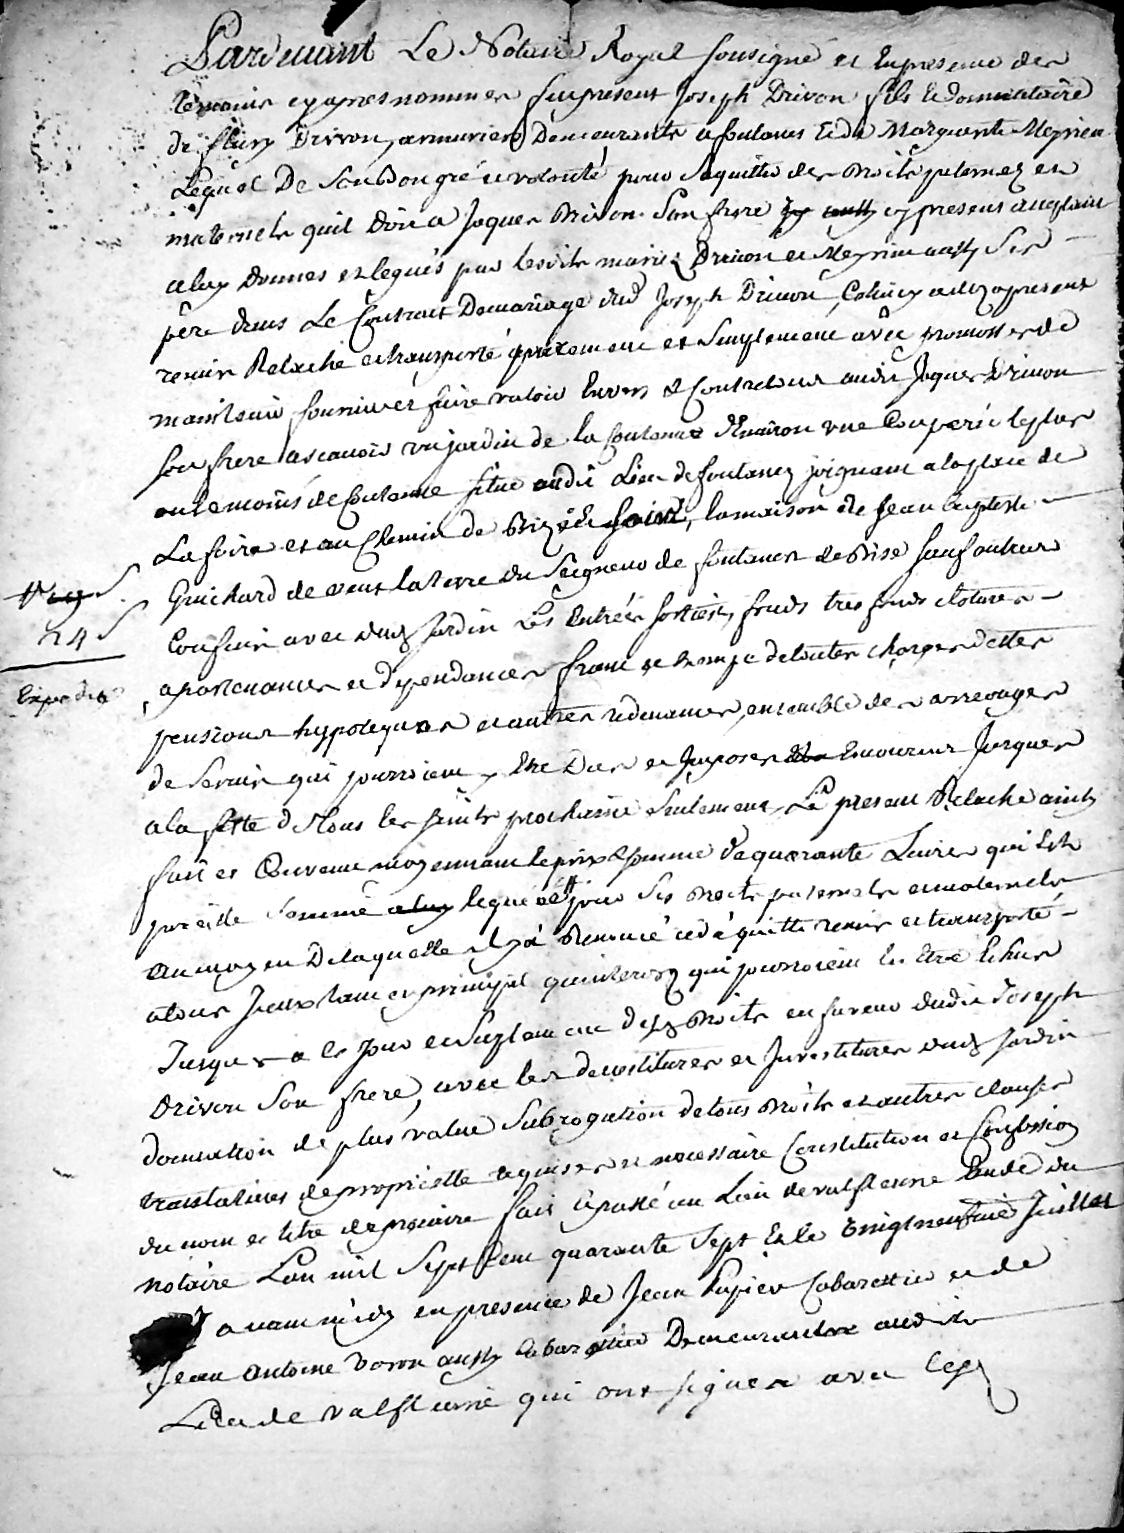 Pardevant Le Notaire Royal sousigné et En presence des
temoins cyapres nommes fut present Joseph Drivon fils & donnataire
de fleury Drivon, armurier Demeurants a foutanes & de Marguerite Meyrieu
Lequel De Son Bon gré et volonté pour Saquitter des Droits paternels et
maternels quil doit a Jaques Drivon Son frere cy present acceptant
a luy donnes et legués par lesdits mariés Drivon et Meyrieu ausy Ses
père dans Le Contrait Demariage dud Joseph Drivon, Celuicy a dez apresent
remis Relaché et transporté purement et Simplement avec promesse de
maintenir fournir et faire valoir Envers & Contre tous audit Jaques Drivon
Son frere ascavoir un jardin de la Contenue Denviron une Couperée le plus
ou le moins de Contenue situé audit Lieu de foutanes joignant a la place de
La foire et au Chemin de Bize et Soir, la maison de Jean Baptiste
Guichard de vent la terre du Seigneur de foutanes de Bise sauf autres
Confins avec dud Jardin Les Entrées sorties, fonds tres fonds clotures
apartenances et dependances franc et exempt de toutes charges dettes
pensions hypoteques et autres redevances, ensemble des arrerages
de Servis qui pourroient y Etre Dus et Imposes Encourus Jusques
a la fette de Tous les Saints prochaine Seulement, Le present Relache ainsy
fait et Convenu moyennant le prix & somme de quarante Livres qui Est
pareille Somme a luy leguée pour Ses Droits paternels et maternels
au moyen De laquelle il a Renoncé cedé quitté remis et transporté
a tous Iceux tant en principal quinterets qui pourroient lui Etre Echus
Jusques a Ce Jour et Suplement desd Droits en faveur dudit Joseph
Drivon Son frere, avec les devestitures et Investitures dudt Jardin
donnation de plus value Subrogation de tous Droits et autres clauses
translatives de proprietté requises et necessaire Constitution et Confession
du nom et titre de precaire fait et passé au Lieu de valfleurie Etude du
notaire L'an mil Sept Cent quarante Sept & le Vingt neufvie Juillet
avant midy en presence de Jean Pupier Cabarettier et de
Jean Antoine Voron ausy cabarettier Demeurants audit
Lieu de Valfleurie qui ont signes avec Les
24 s
Expedié